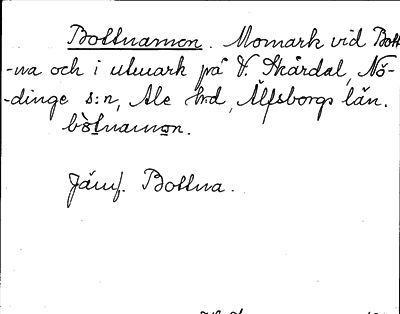 Bottnamon. Momark vid Bott-
-na och i utmark på V. Skårdal, Nö-
-dinge s:n, Ale hd, Älfsborgs län.
bòtnamon.
Jämf. Bottna.